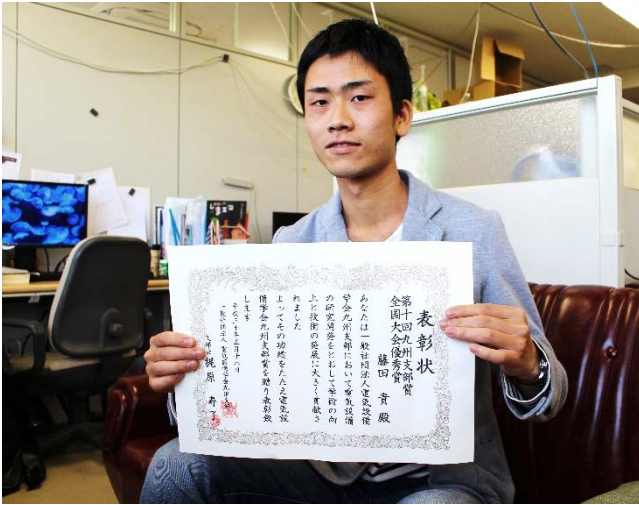 表彰状
第十回九州支部賞
全国大会優秀賞
藤田 貴 殿
あなたは一般社団法人電気設備
学会九州支部において電気設備
の研究開発をとおして学術の向
上と技術の発展に大きく貢献さ
れました
よってその功績をたたえ電気設
備学会九州支部賞を贈り表彰致
します
一般社団法人 電気設備学会九州支部
梶原 寿了